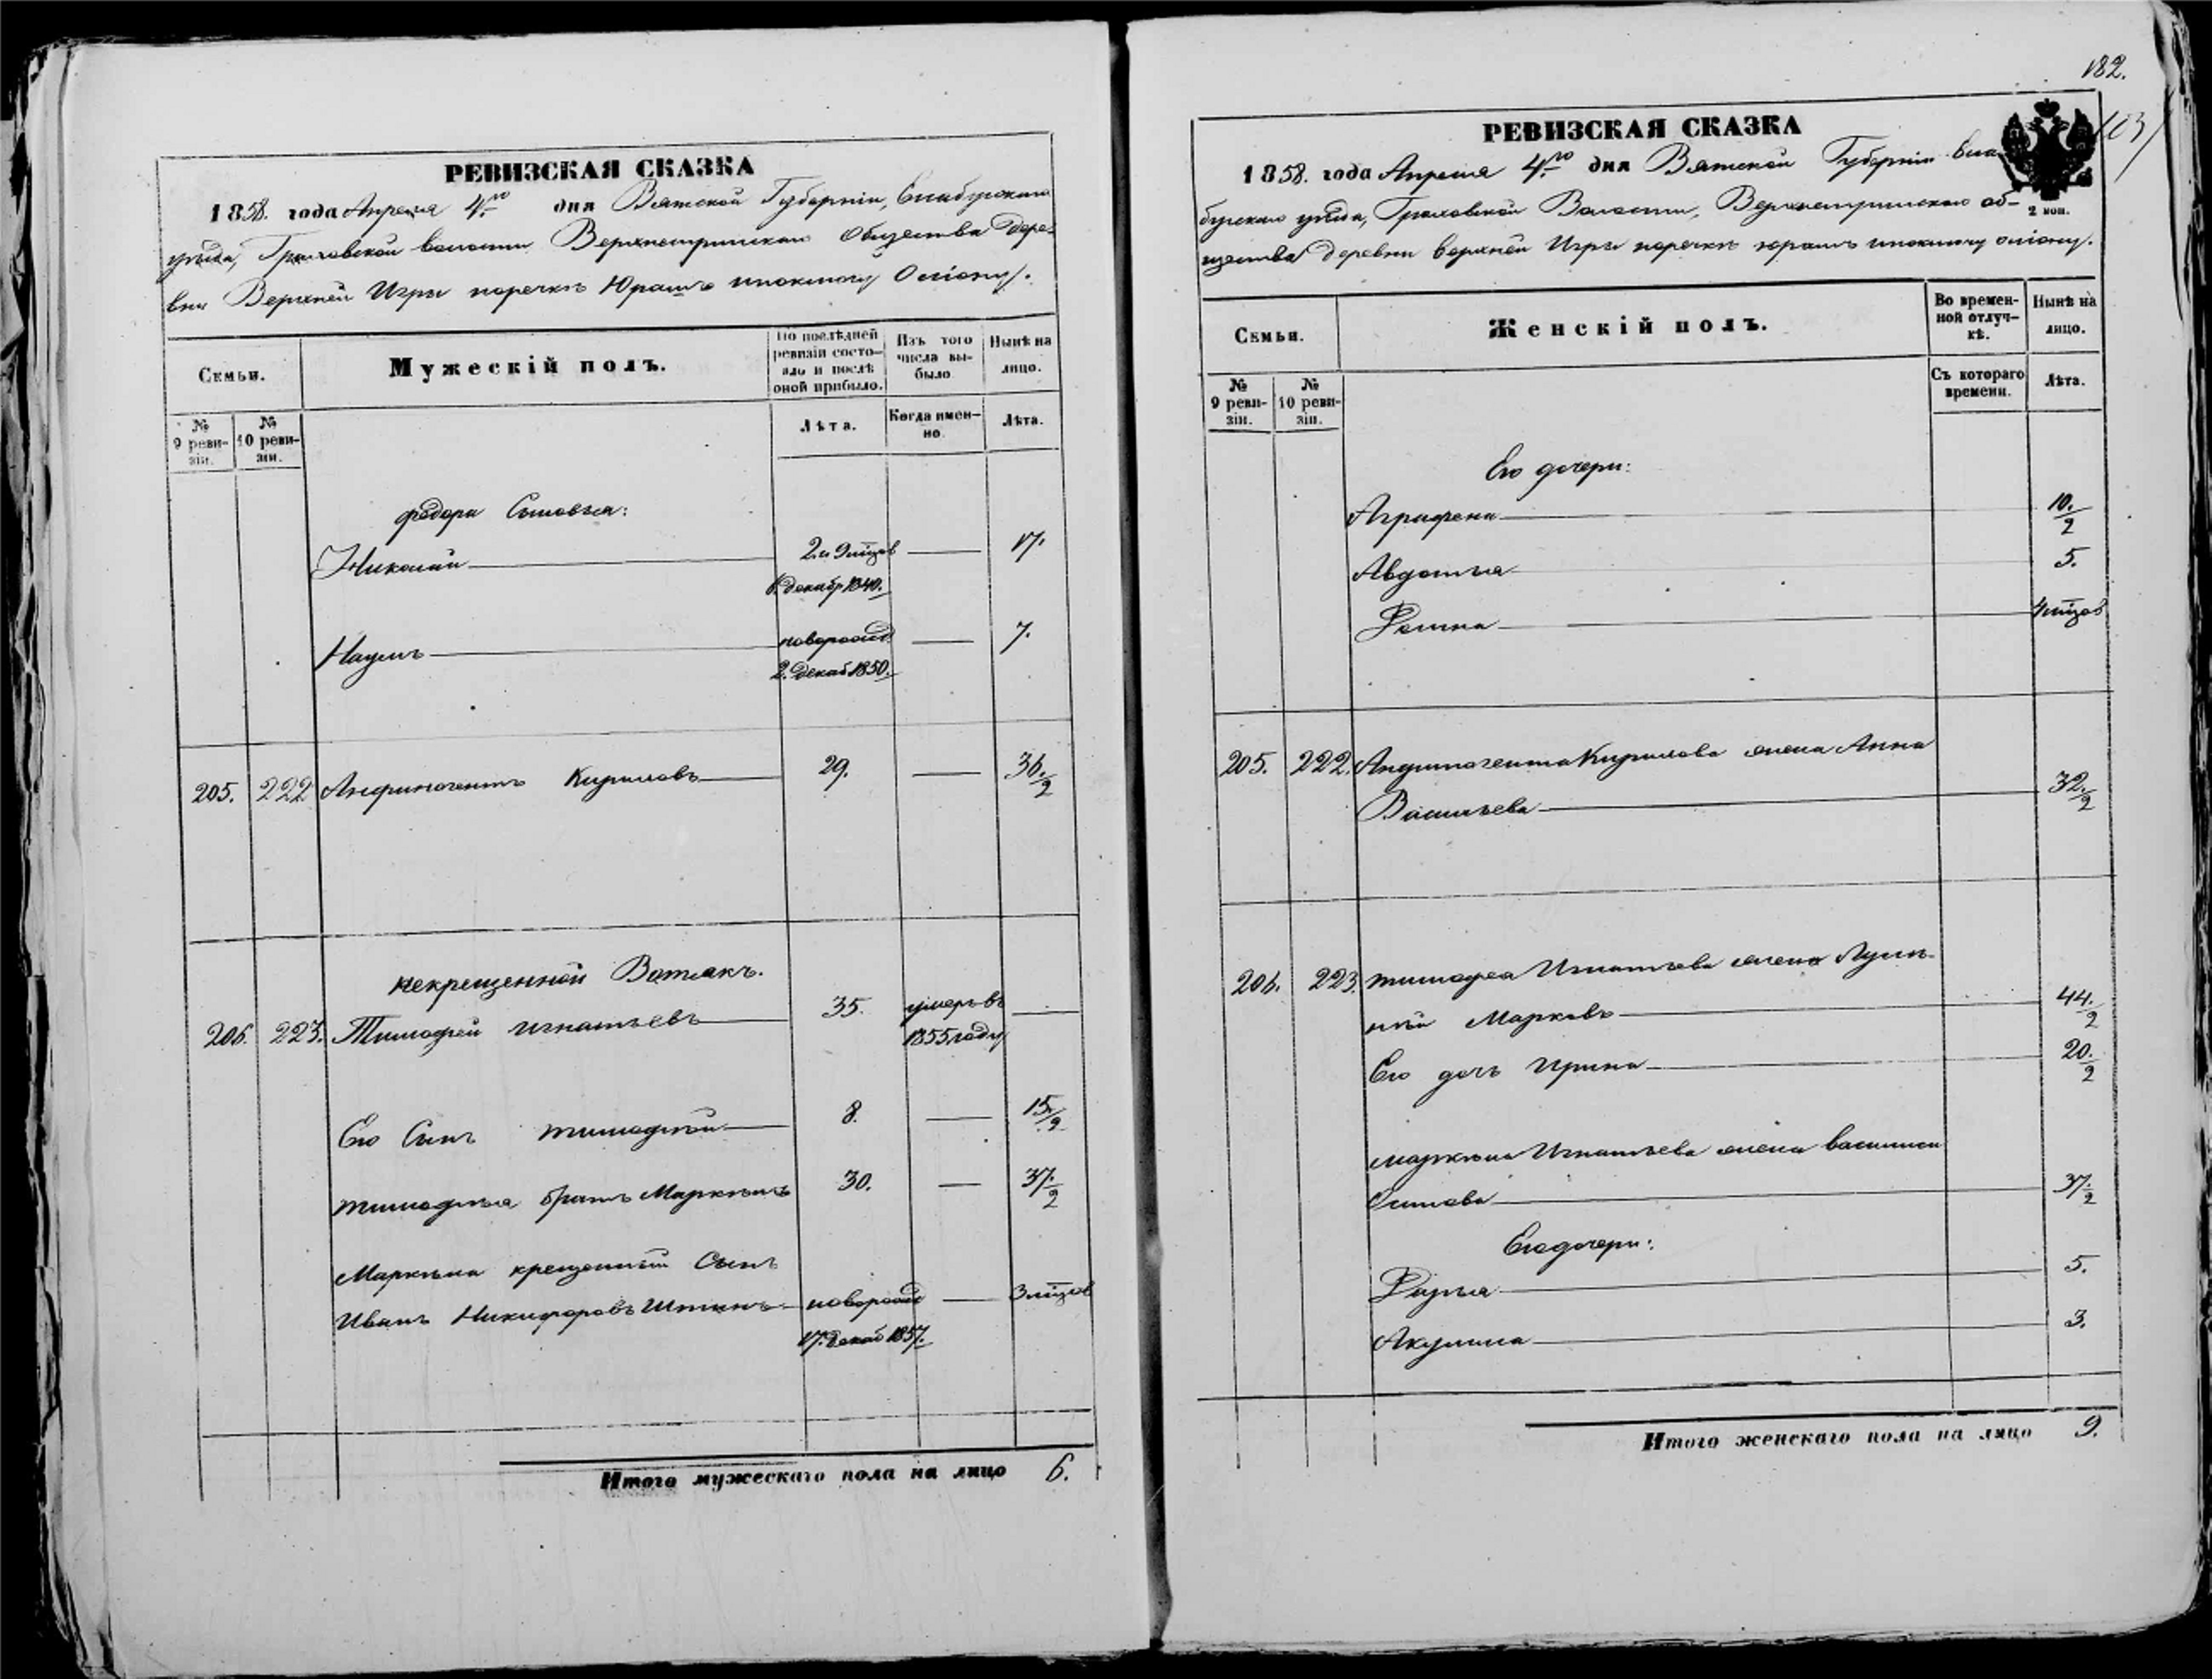 РЕВИЗСКАЯ СКАЗКА
1858. года Апреля 4го дня Вятской Губерніи, Елабужскаго
уѣзда, Граховской волости Верхнеигринскаго Общества Дере-
вни Верхней Игры поречкѣ Юрашъ
Семьи.
Мужескій полъ.
По послѣдней ревизіи состо-яло и послѣ оной прибыло.
Изъ того числа вы-было
Нынѣ на лицо.
№ 9 реви-зіи.
№ 10 реви-зіи.
Лѣта.
Когда имен-но.
Лѣта.
Федора Сыновья:
Николай 2. и 9 мцов 17.
6. декабр 1840.
Наумъ новорожд. 7.
2. декаб 1850.
205. 222 Анфиногентъ Кириловъ 29. 36 1/2
некрещенной Вотякъ.
206. 223. Тимофей Игнатьевъ 35. умеръ въ
1855 году
Его Сынъ Тимофѣй 8. 15 1/2
Тимофѣя братъ Маркелъ 30. 37 1/2
Маркела крещенный Сынъ
Иванъ Никифоровъ новорожд 3 мцов
17. декаб 1857.
Итого мужескаго пола на лицо 6.
182.
103
РЕВИЗСКАЯ СКАЗКА
1858. года Апреля 4го дня Вятской Губерніи Ела-
бужскаго уѣзда, Граховской Волости, Верхнеигринскаго об-
2 коп.
щества деревни верхней Игры поречкѣ юрашъ
Семьи.
Женскій полъ.
Во времен-ной отлуч-кѣ.
Нынѣ на лицо.
№ 9 реви-зіи.
№ 10 реви-зіи.
Съ котораго времени.
Лѣта.
Его дочери:
Аграфена 10. 1/2
Авдотья 5.
4 мцов
205. 222. Анфиногента Кирилова жена Анна
Васильева 32. 1/2
206. 223. Тимофея Игнатьева жена
Марковъ 44. 1/2
Его дочь Ирина 20. 1/2
Маркела Игнатьева жена василиса
Осипова 37 1/2
Его дочери:
Дарья 5.
Акулина 3.
Итого женскаго пола на лицо 9.